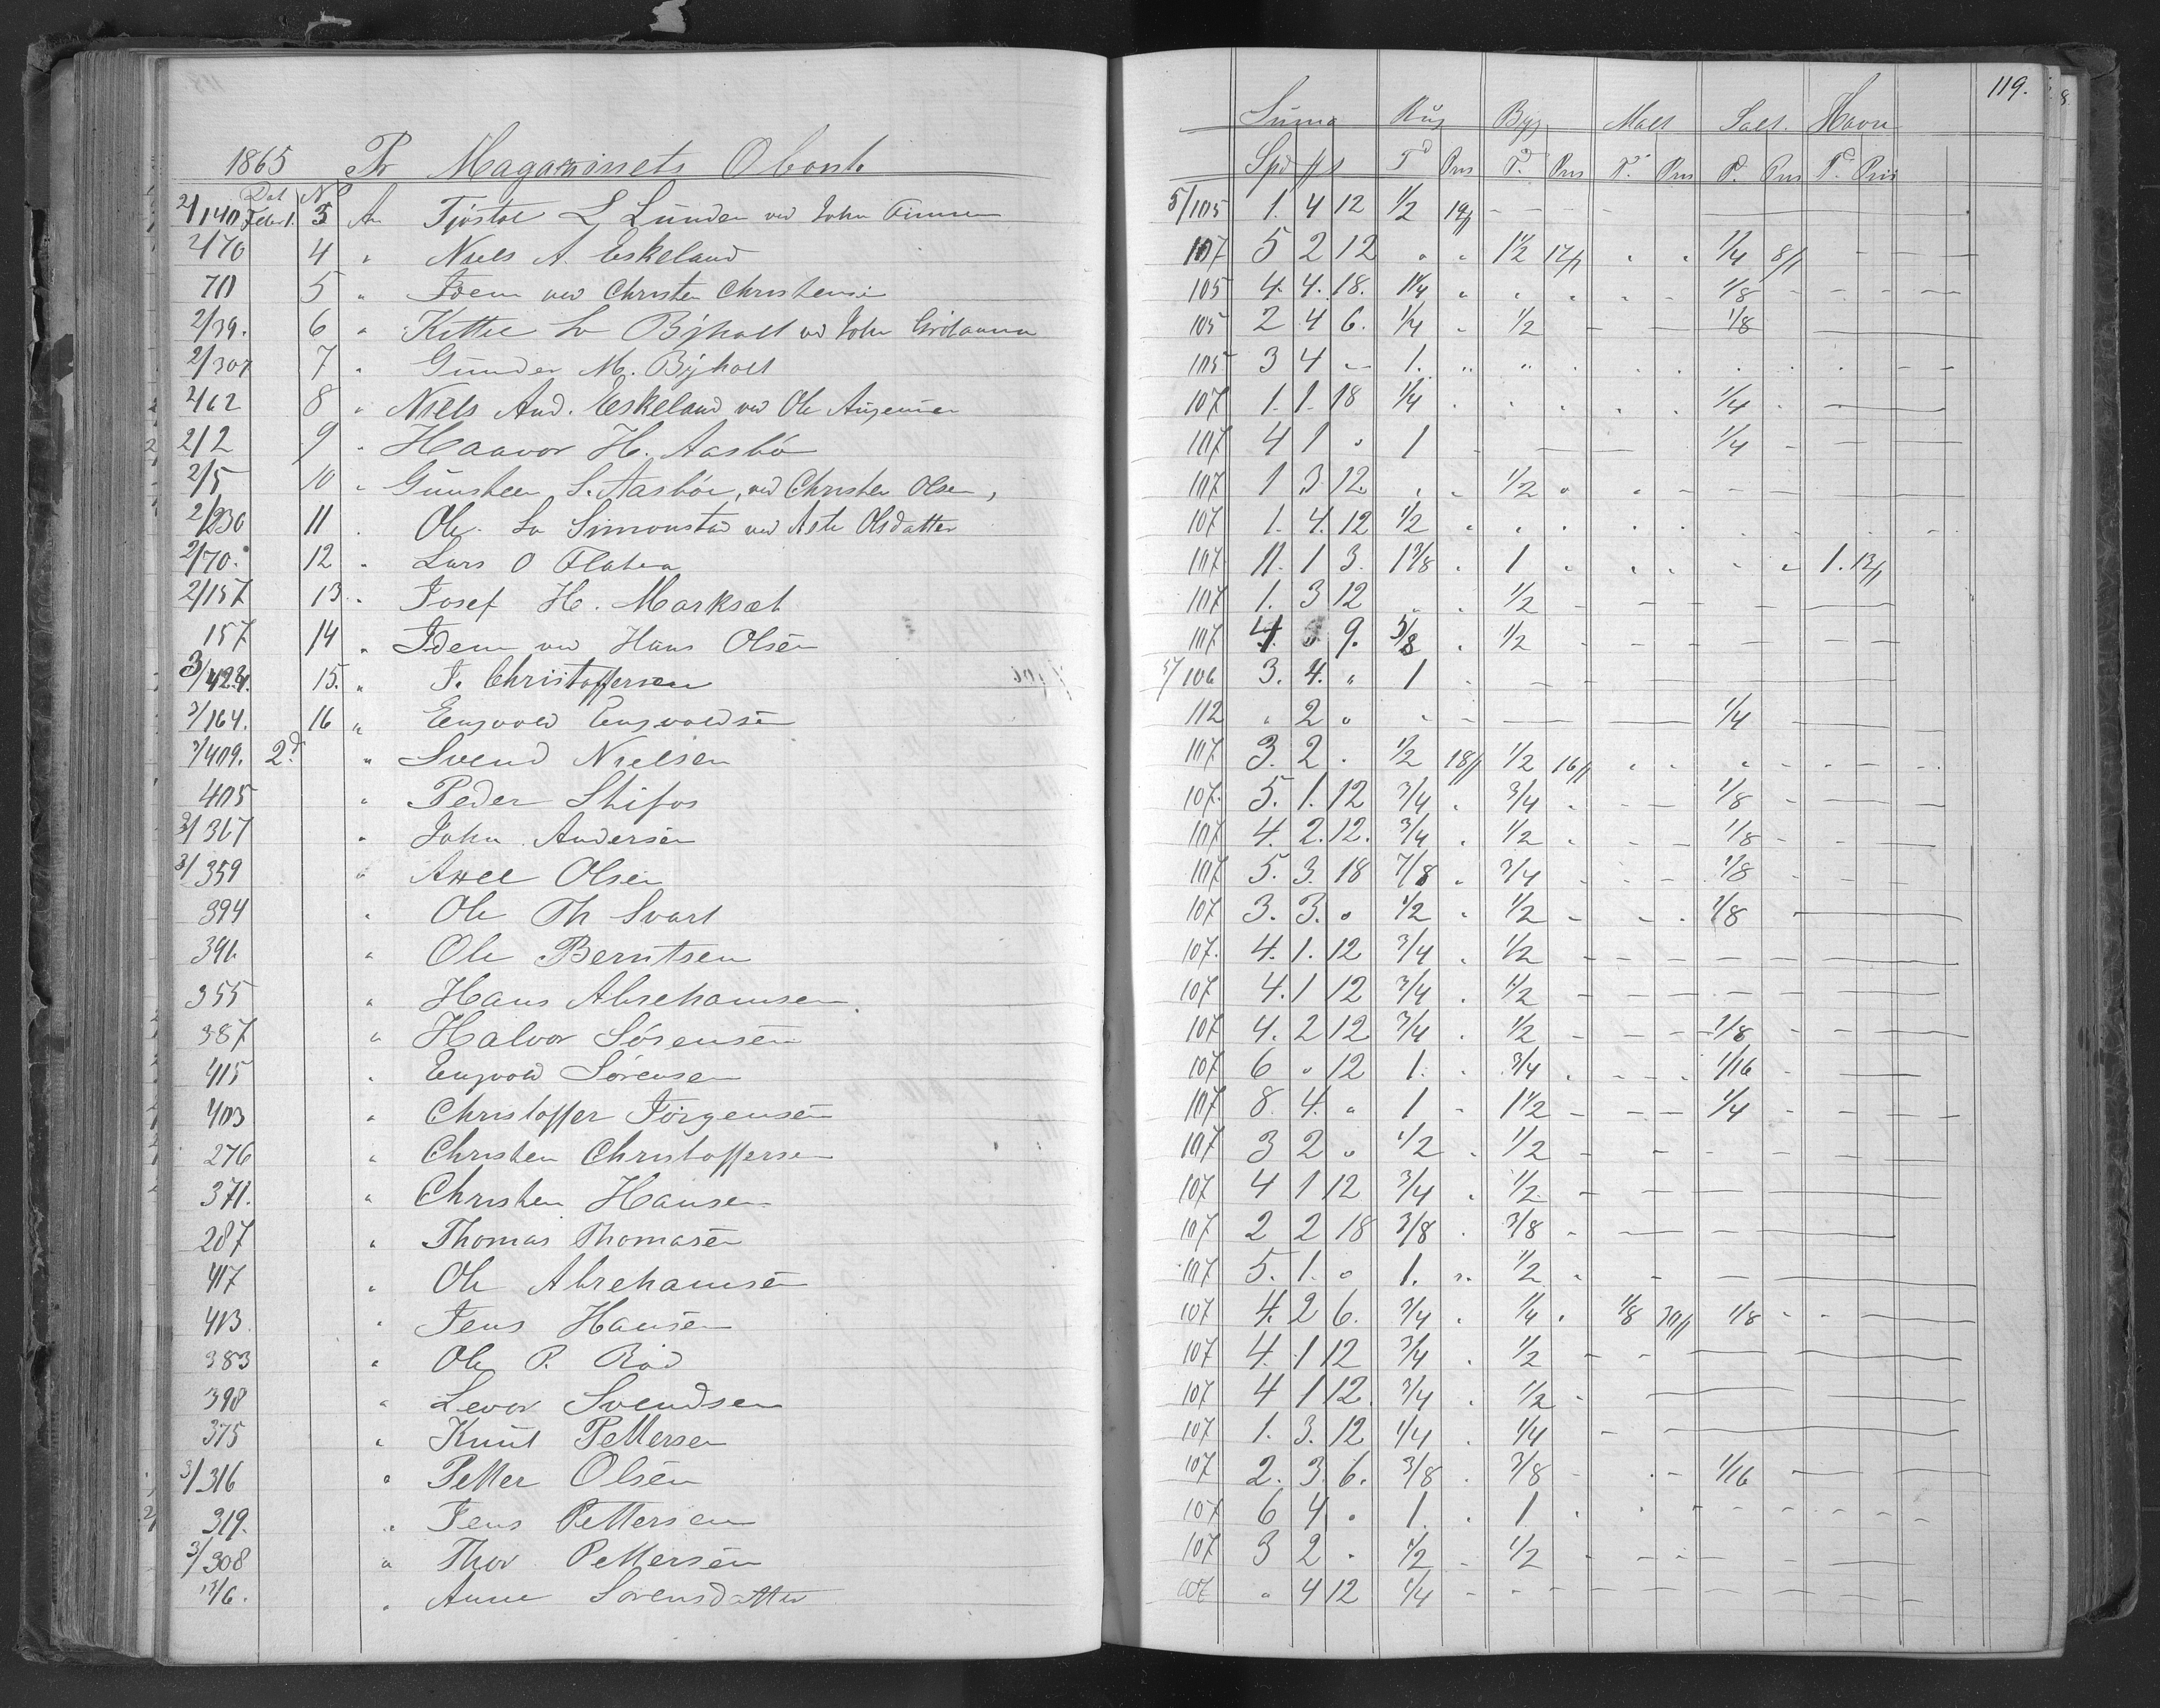 119.
Suma Rug Byg Malt Salt. Havre
1865 Pr Magazinets Obont
Dat No Spd # s Td Pris T. Pris T. Pris T. Pris Td Pris
2/140 Febr 1. 3 An Tjöstol L Lunden ved John 5/105 1. 4 12 1/2 19#
2/70 4 " Niels A. Eskeland 107 5 2 12 " " 1 1/2 17# " " 1/4 8#
70 5 " Idem ved Christen Christensen 105 4. 4. 18. 1 1/4 " " " 1/8
2/39. 6 " Kittel Byholt ved John 105 2 4 6. 1/4 " 1/2 1/8
2/307 7 " Gunder M. Byholt 105 3 4 - 1. " "
2/62 8 " Niels And. Eskeland ved Ole 107 1. 1. 18 1/4 1/4
2/2 9 " Haavor H. Aasbö 107 4 1 " 1 1/4
2/5 10 " Gunsteen S. Aasböe, ved Christen Olsen, 107 1 3 12. " " 1/2
2/230 11 " Ole Simonstad ved Aste Olsdatter 107 1. 4. 12 1/2
2/70. 12 " Lars O Flaten 107. 11. 1 3. 1 3/8 " 1 " " " " " 1. 13#
2/157 13 " Josef H. Marksæt 107 1. 3 12 " " 1/2
157 14 " Idem ved Hans Olsen 107. 4. 9. 5/8 " 1/2
3/424. 15. " J. Christoffersen 5/106 3. 4. " 1
3/164. 16 " Engvold Engvoldsen 112 " 2 " 1/4
3/409. 2d " Svend Nielsen 107 3. 2 . 1/2 18# 1/2 16#
405 " Peder Stifos 107. 5. 1. 12 3/4 " 3/4 " 1/8
3/367 " John Andersen 107 4. 2. 12. 3/4 " 1/2 " 1/8
3/359 " Axel Olsen 107 5. 3. 18 7/8 " 3/4 1/8
394 " Ole Th Svart 107 3. 3. " 1/2 " 1/2 1/8
391. " Ole Berntsen 107. 4. 1. 12 3/4 " 1/2
355 " Hans Abrehamsen 107 4. 1 12 3/4 " 1/2
387 " Halvor Sörensen 107 4. 2 12 3/4 " 1/2 1/8
415 " Engvold Sörensen 107 6 " 12 1. " 3/4 1/16
403 " Christoffer Jörgensen 107 8. 4. " 1 " 1 1/2 1/4
276 " Christen Christoffersen 107 3 2 " 1/2 " 1/2
371. " Christen Hansen 107 4 1 12 3/4 " 1/2
287 " Thomas Thomasen 107 2 2 18 3/8 " 3/8
417 " Ole Abrehamsen 107 5. 1. " 1. " 1/2
413 " Jens Hansen 107 4. 2 6. 3/4 " 1/4 " 1/8 30# 1/8
383 " Ole P. Röd 107 4. 1 12 3/4 " 1/2
398 " Levor Svendsen 107 4 1 12. 3/4 " 1/2
375 " Knut Pettersen 107 1. 3. 12 1/4 " 1/4
3/316 " Petter Olsen 107 2. 3. 6. 3/8 " 3/8 1/16
319. " Jens Pettersen 107 6 4 " 1. " 1
3/308 " Thor Pettersen 107 3 2 " 1/2 " 1/2
13/6. " Anne Sorensdatter 107 " 4 12 1/4